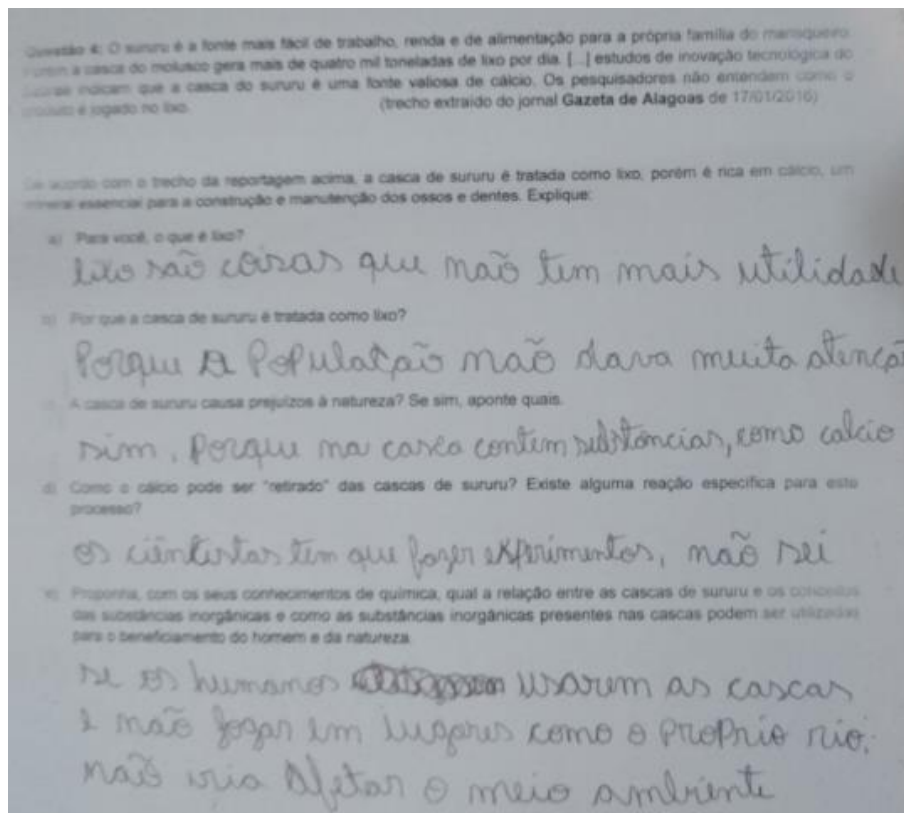 Questão 4: O sururu é a fonte mais fácil de trabalho, renda e de alimentação para a própria família do marisqueiro.
Porém a casca do molusco gera mais de quatro mil toneladas de lixo por dia. [...] estudos de inovação tecnológica do
indicam que a casca do sururu é uma fonte valiosa de cálcio. Os pesquisadores não entendem como o
produto é jogado no lixo. (trecho extraído do jornal Gazeta de Alagoas de 17/01/2016)
De acordo com o trecho da reportagem acima, a casca de sururu é tratada como lixo, porém é rica em cálcio, um
mineral essencial para a construção e manutenção dos ossos e dentes. Explique:
a) Para você, o que é lixo?
lixo são coisas que não tem mais utilidade
b) Por que a casca de sururu é tratada como lixo?
Porque A População não dava muita atençã
c) A casca de sururu causa prejuízos à natureza? Se sim, aponte quais.
sim, porque na casca contem substâncias, como calcio
d) Como o cálcio pode ser "retirado" das cascas de sururu? Existe alguma reação específica para este
processo?
os cientistas tem que fazer experimentos, não sei
e) Proponha, com os seus conhecimentos de química, qual a relação entre as cascas de sururu e os conceitos
das substâncias inorgânicas e como as substâncias inorgânicas presentes nas cascas podem ser utilizadas
para o beneficiamento do homem e da natureza.
se os humanos usarem as cascas
e não jogar em lugares como o proprio rio,
não iria Afetar o meio ambiente